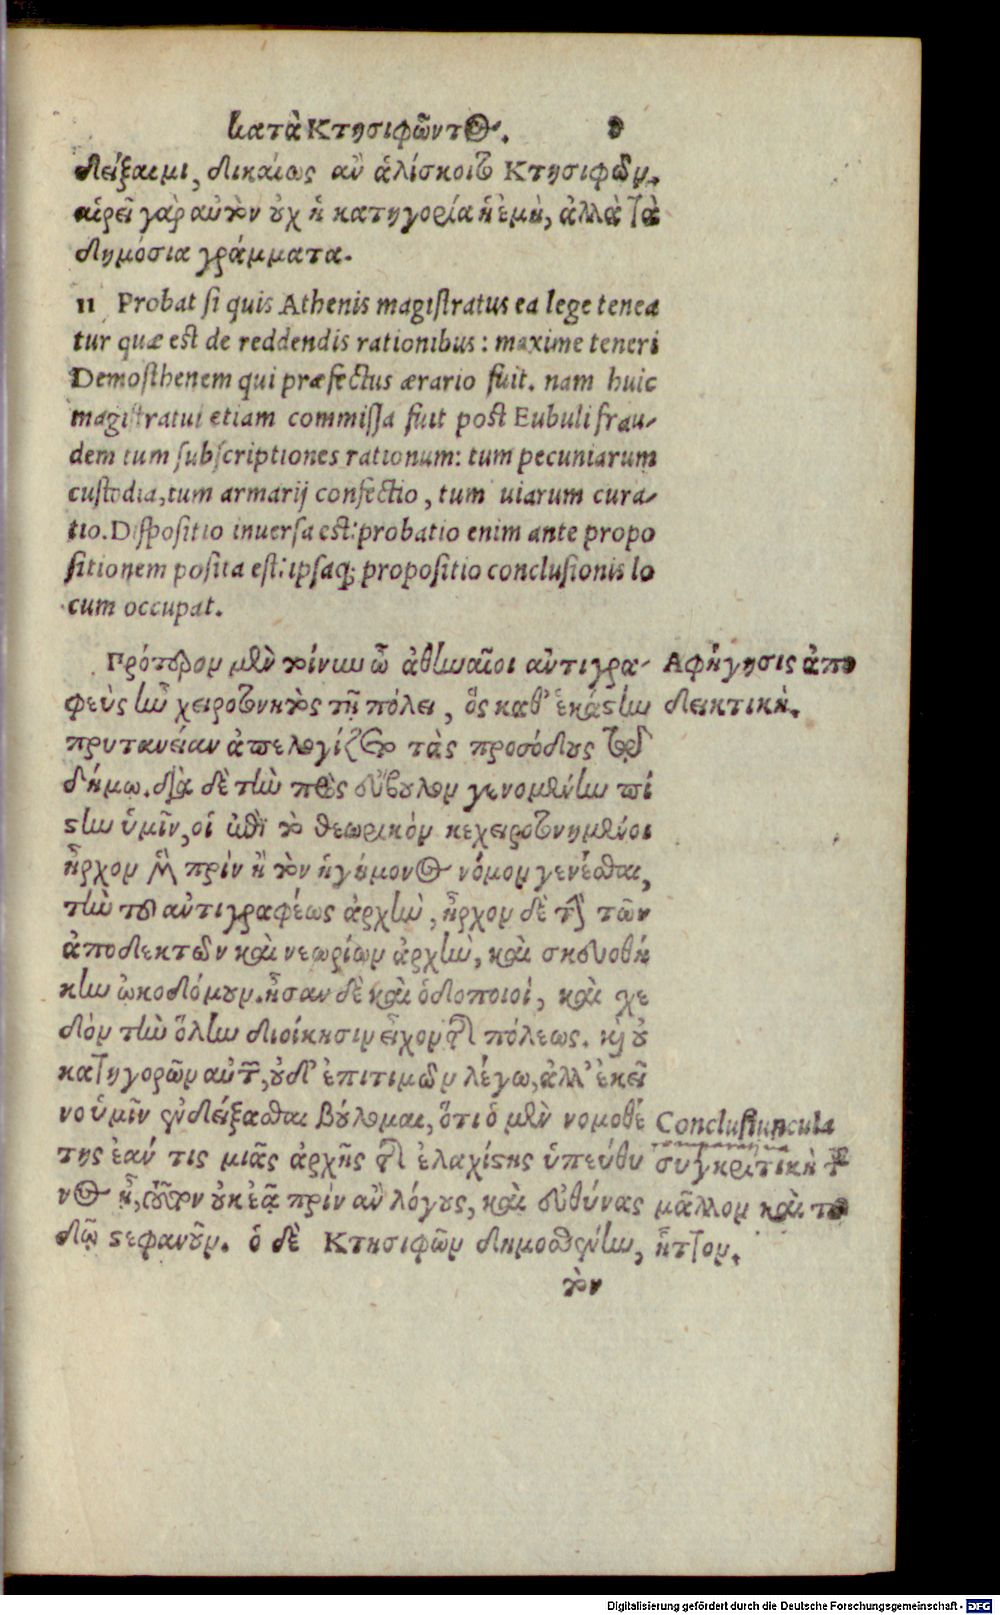 κατὰ Κτησιφῶντος. 9
δείξαιμι, δικαίως ἂν ἁλίσκοιτο Κτησιφῶν.
αἱρεῖ γὰρ αὐτὸν οὐχ ἡ κατηγορία ἡ ἐμὴ, ἀλλὰ τὰ
δημόσια γράμματα.
11 Probat si quis Athenis magistratus ea lege tenea
tur quæ est de reddendis rationibus: maxime teneri
Demosthenem qui præfectus ærario fuit. nam huic
magistratui etiam commissa fuit post Eubuli frau-
dem tum subscriptiones rationum: tum pecuniarum
custodia, tum armarij confectio, tum uiarum cura-
tio. Dispositio inuersa est: probatio enim ante propo
sitionem posita est: ipsaq; propositio conclusionis lo
cum occupat.
Πρότερον μὲν τοίνυν ὦ ἀθηναῖοι ἀντιγρα-
φεὺς ἦν χειροτονητὸς τῇ πόλει, ὃς καθ' ἑκάστην
πρυτανείαν ἀπελογίζετο τὰς προσόδους τῷ
δήμῳ. διὰ δὲ τὴν πρὸς εὔβουλον γενομένην πί
στιν ὑμῖν, οἱ ἐπὶ τὸ θεωρικὸν κεχειροτονημένοι
ἦρχον μὲν πρὶν ἢ τὸν ἡγήμονος νόμον γενέσθαι,
τὴν τοῦ ἀντιγραφέως ἀρχὴν, ἦρχον δὲ τὴν τῶν
ἀποδεκτῶν καὶ νεωρίων ἀρχὴν, καὶ σκευοθή
κην ὠκοδόμουν. ἦσαν δὲ καὶ ὁδοποιοὶ, καὶ σχε
δὸν τὴν ὅλην διοίκησιν εἶχον τῆς πόλεως. καὶ οὐ
κατηγορῶν αὐτῶν, οὐδ' ἐπιτιμῶν λέγω, ἀλλ' ἐκεῖ
νο ὑμῖν ἐνδείξασθαι βούλομαι, ὅτι ὁ μὲν νομοθέ
της ἐάν τις μιᾶς ἀρχῆς τῆς ἐλαχίστης ὑπεύθυ
νος ᾖ, τοῦτον οὐκ ἐᾷ πρὶν ἂν λόγους, καὶ εὐθύνας
δῷ στεφανοῦν. ὁ δὲ Κτησιφῶν δημοσθένην,
τὸν
Αφήγησις ἀπο
δεικτική.
Conclusiuncula
comparatiua
συγκριτικὴ
μᾶλλον καὶ το
ἧττον.
Digitalisierung gefördert durch die Deutsche Forschungsgemeinschaft - DFG